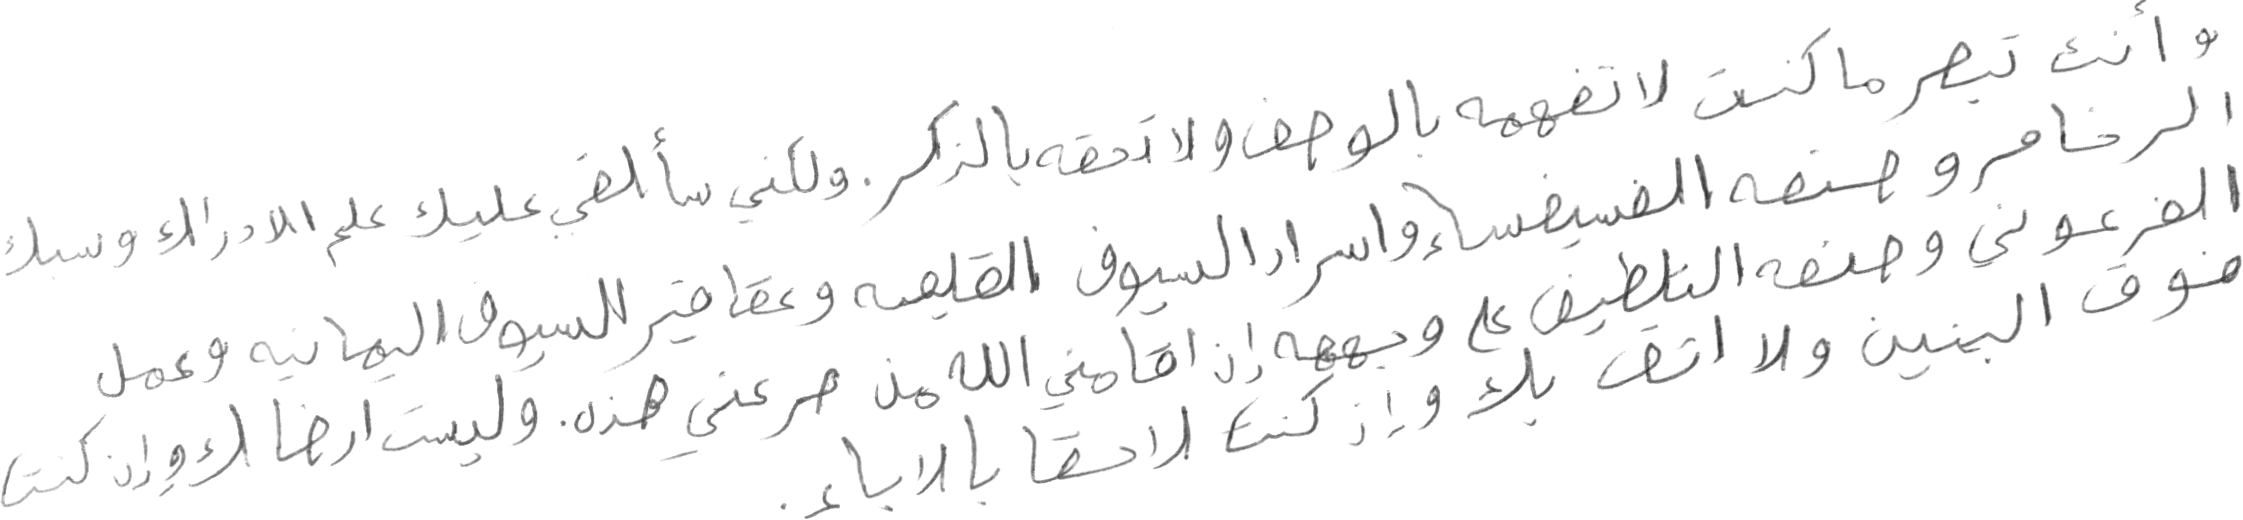 وأنت تبصر ما كنت لا تفهمه بالوصف ولا تحقه بالذكر. ولكني سألقي عليك علم الادراك وسبك
الرخام و صنعه الفسيفساء واسرار السيوف القلعيه وعقاقير السيوف اليمانيه وعمل
الفرعوني وصنعه التلطيف علي وجهه إن اقامني الله من صرعتي هذه. وليست ارضاك وإن كنت
فوق البنين ولا اثق بك وإن كنت لاحقا بالاباء.